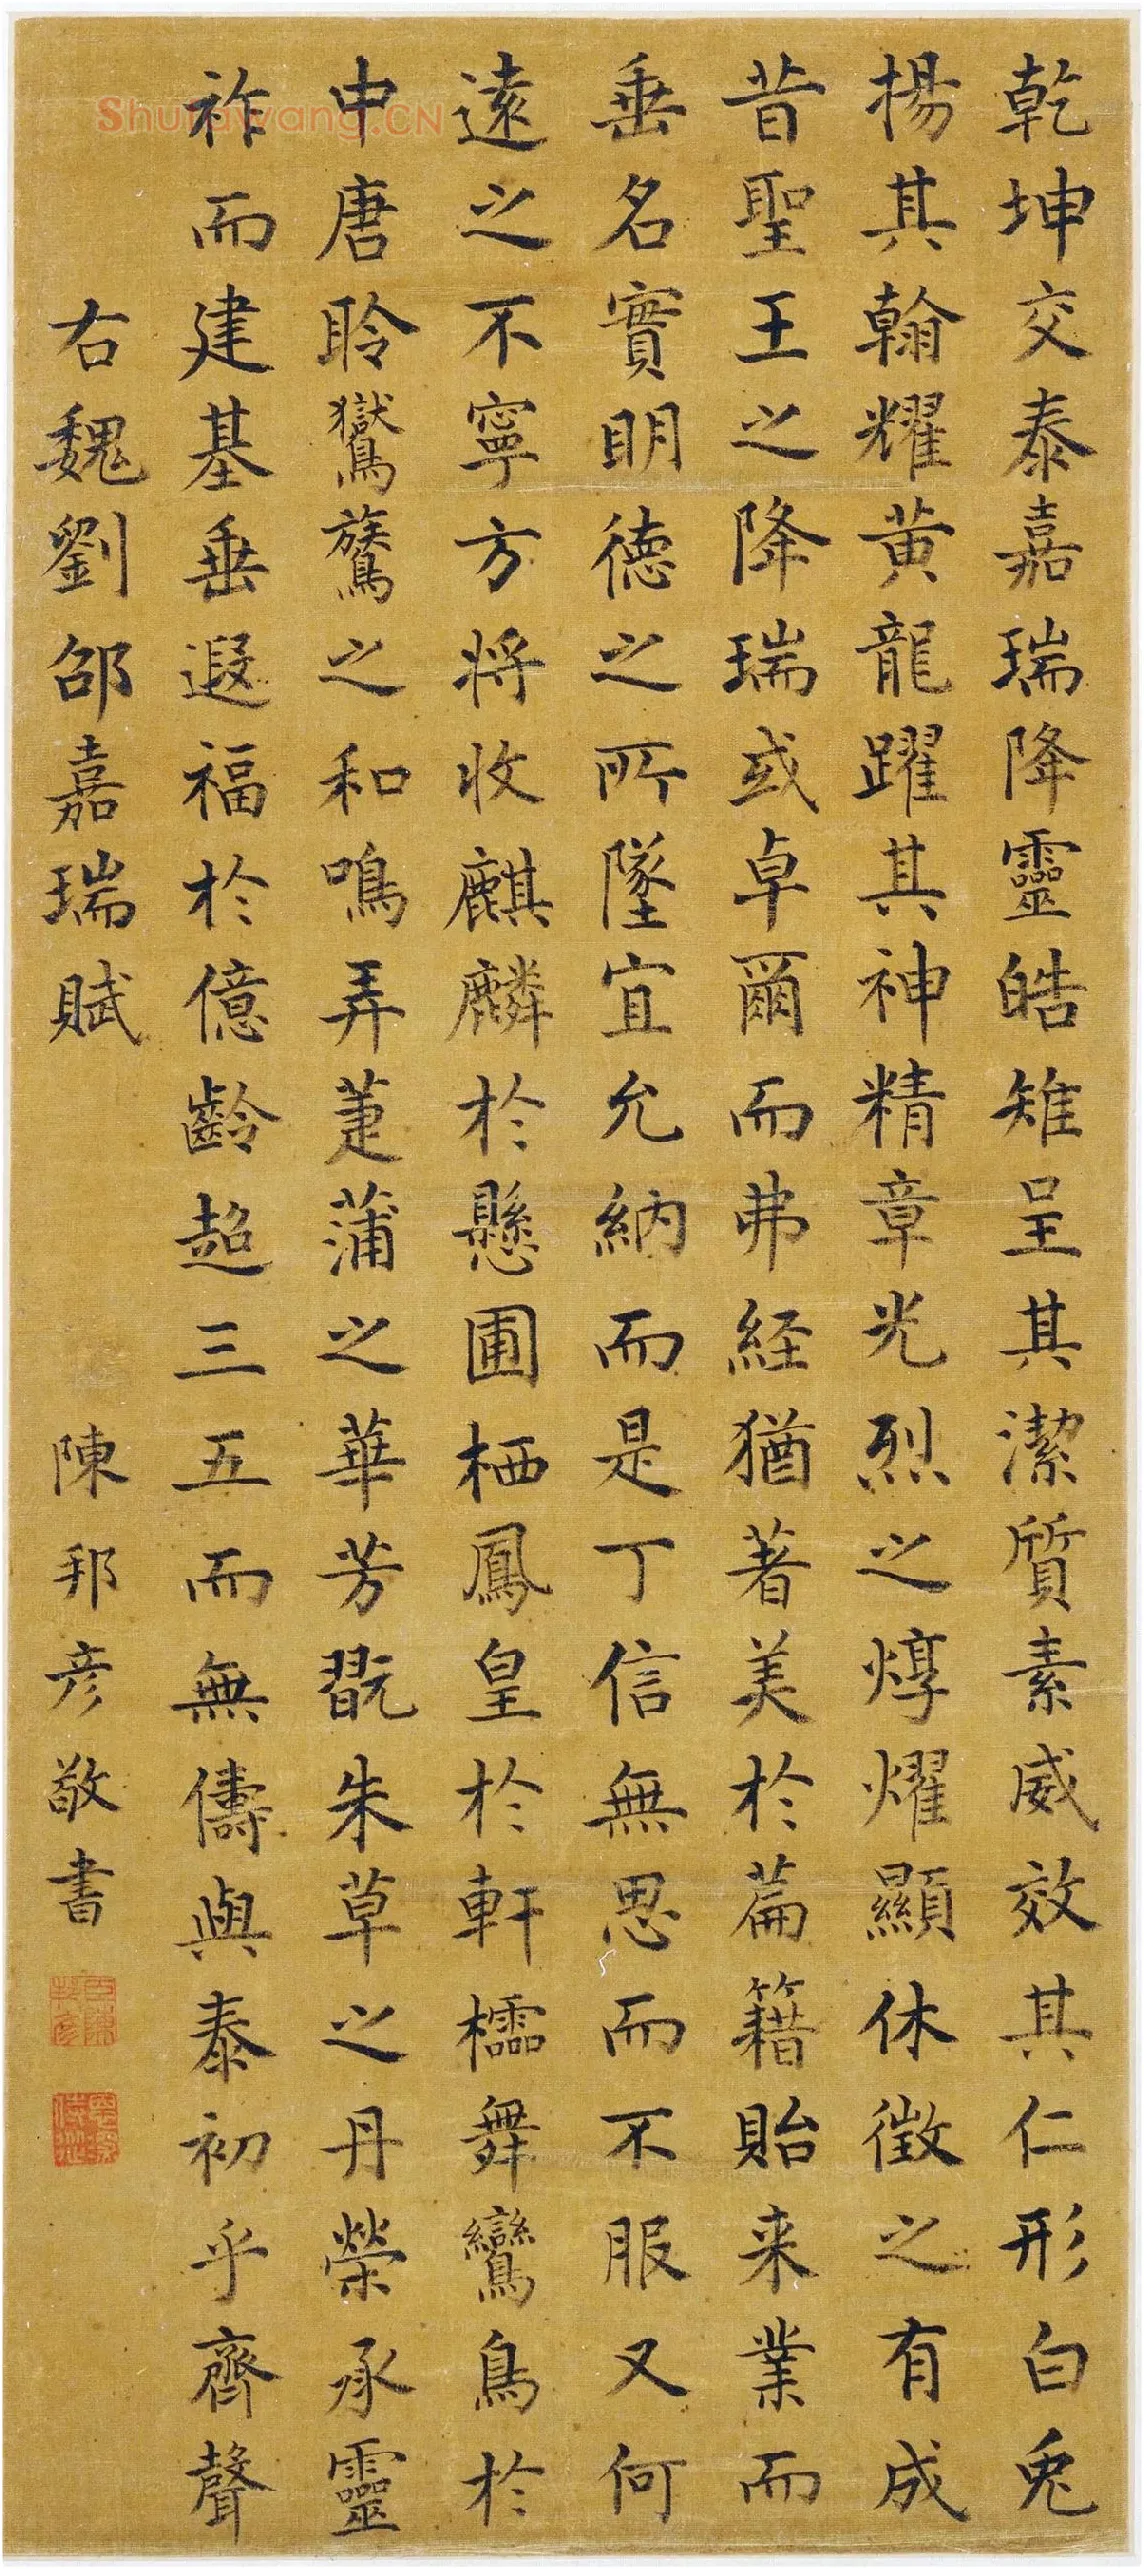 乾坤交泰嘉瑞降靈皓雉呈其潔質素威效其仁形白兎
揚其翰耀黄龍躍其神精章光烈之焞燿顯休徴之有成
昔聖王之降瑞或卓爾而弗経猶著美於篇籍貽来業而
垂名實明德之所墜宜允納而是丁信無思而不服又何
遠之不寧方将收麒麟於懸圃栖鳳皇於軒櫺舞鸞鳥於
中唐聆鸑鷟之和鳴弄萐蒲之華芳翫朱草之丹榮承靈
祚而建基垂遐福於億齡超三五而無儔與泰初乎齊聲
右魏劉邵嘉瑞賦
陳邦彦敬書
臣陳邦彦
Shufawang.CN